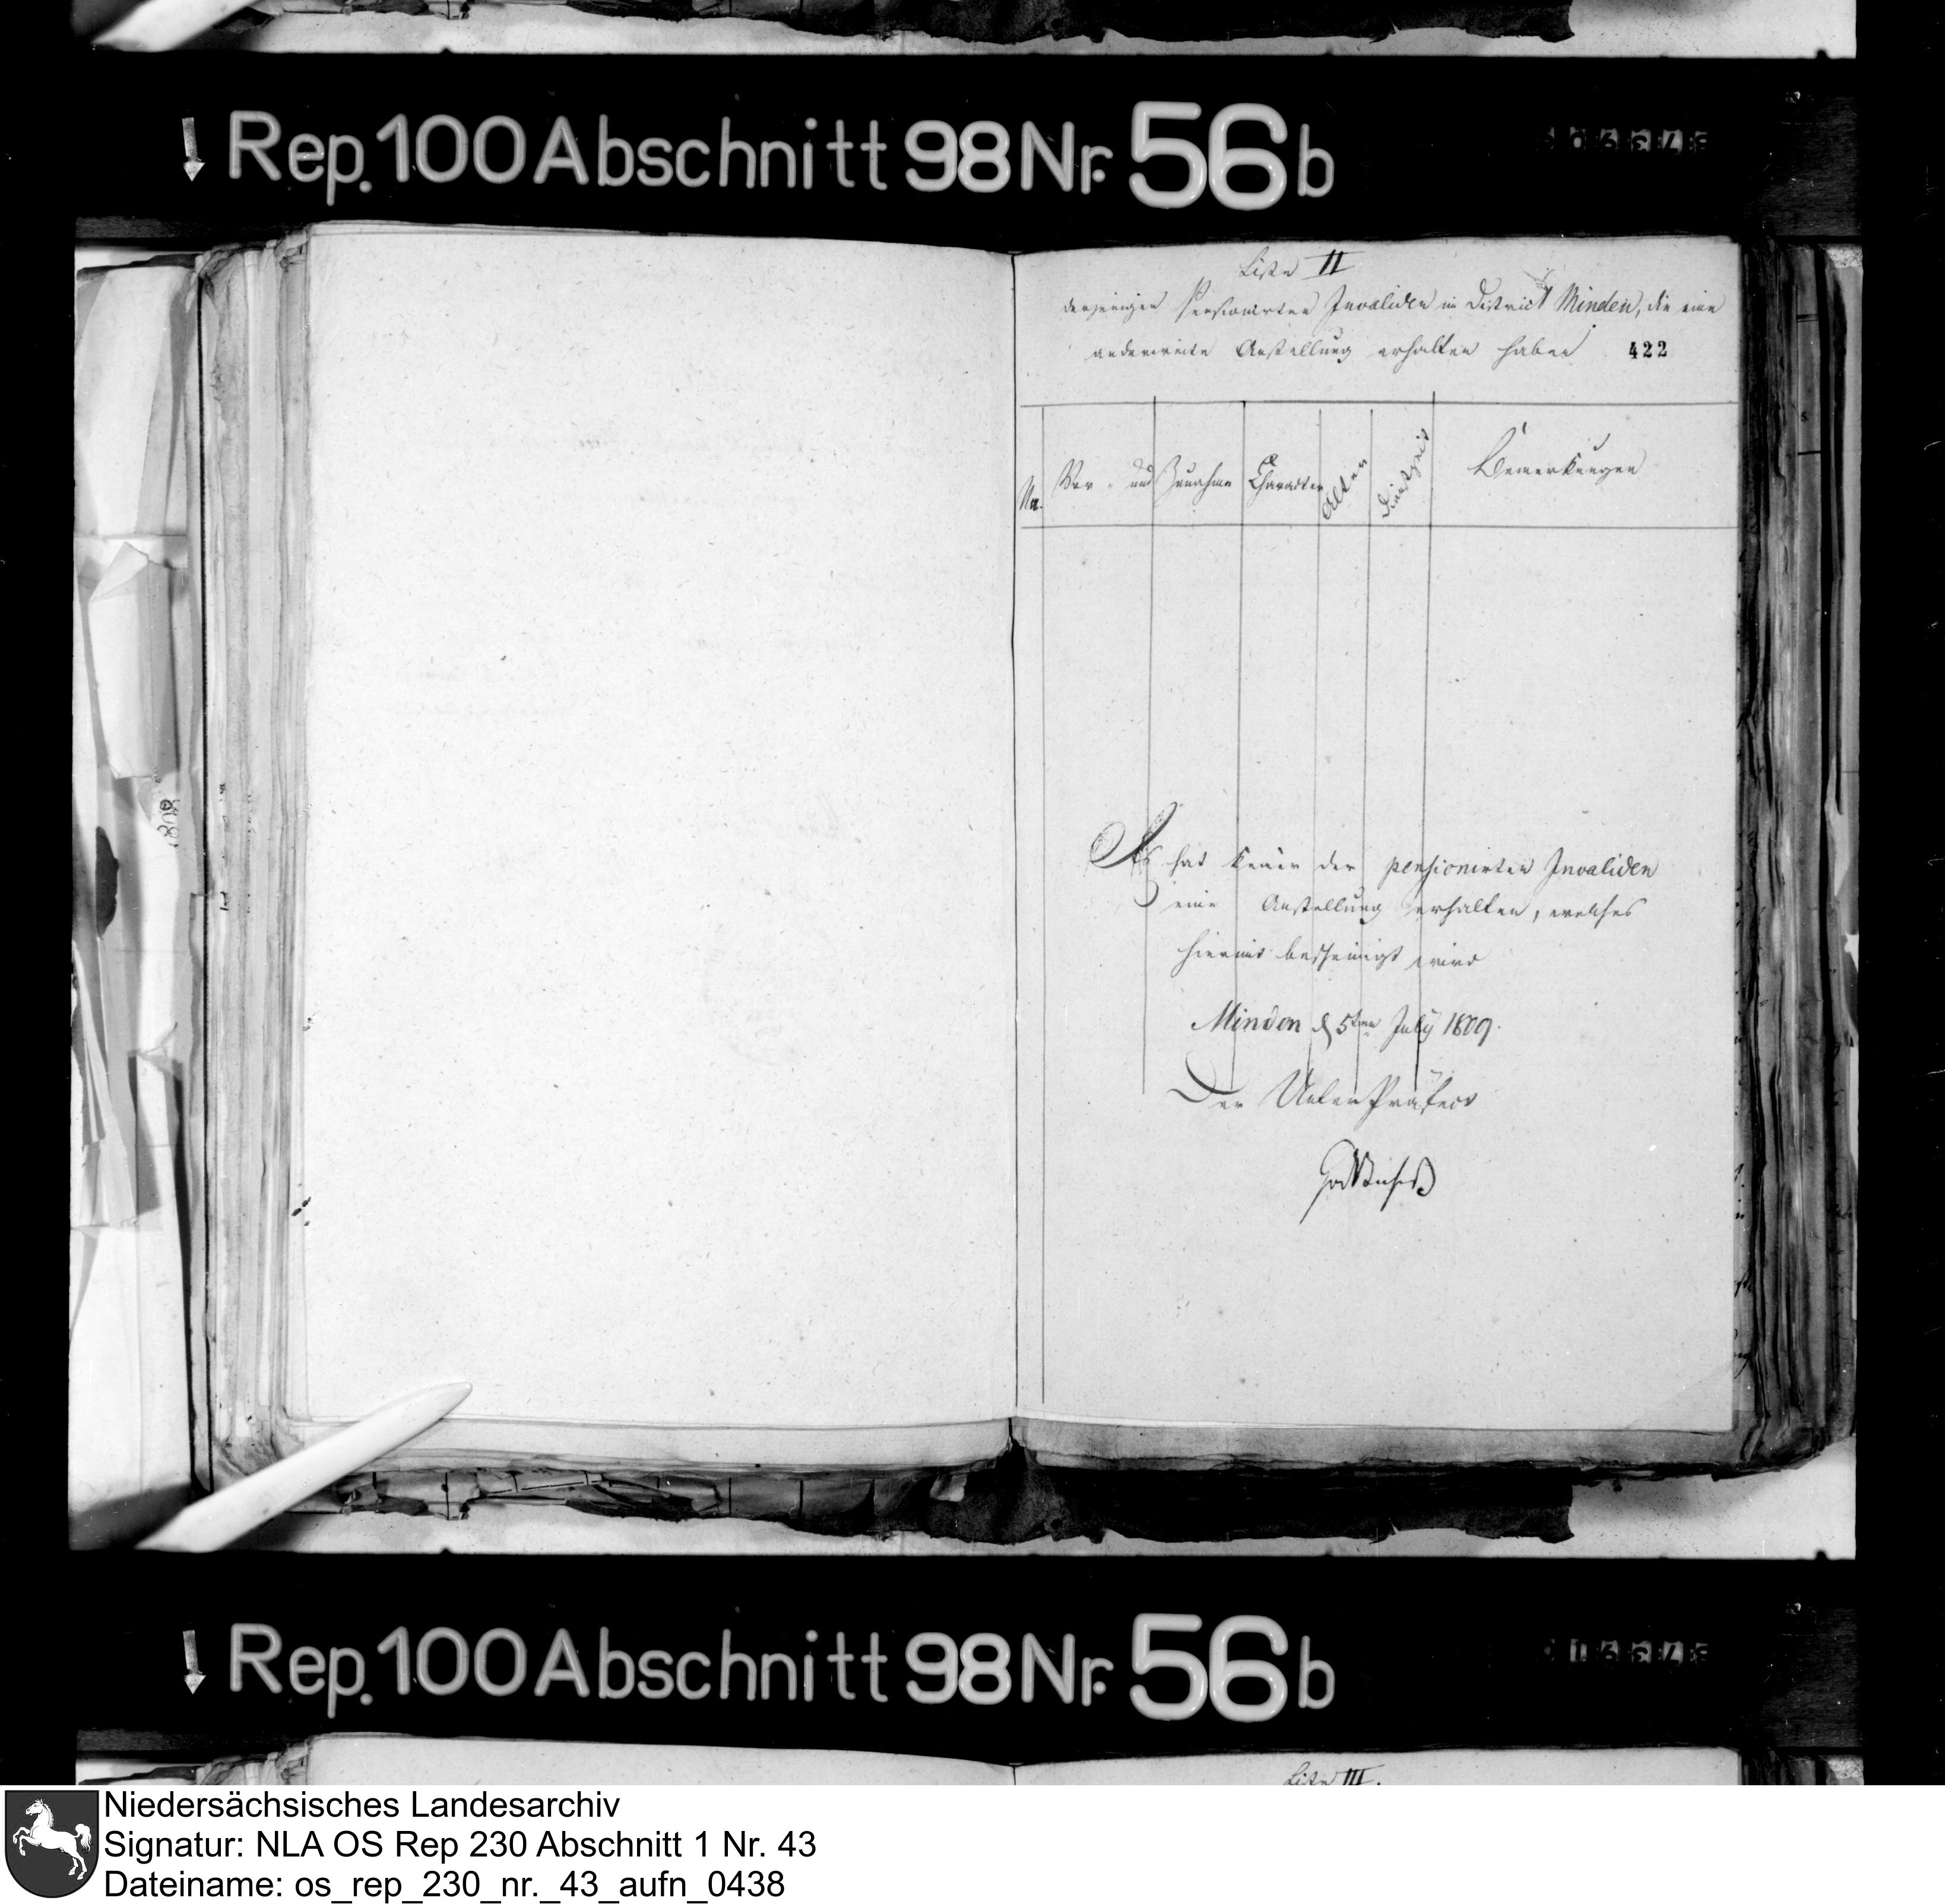 Rep. 100 Abschnitt 98 Nr. 56 b
Liste II
derjenigen Pensionirten Invaliden im District Minden, die eine
anderweite Anstellung erhalten haben
422
No. Vor- und Zunahme Character Alter Dienstzeit Bemerkungen
Es hat keiner der pensionirten Invaliden
eine Anstellung erhalten, welches
hiermit bescheinigt wird
Minden d 5ten July 1809.
Der Unter Präfect
Rep. 100 Abschnitt 98 Nr. 56 b
Liste III.
Niedersächsisches Landesarchiv
Signatur: NLA OS Rep 230 Abschnitt 1 Nr. 43
Dateiname: os_rep_230_nr._43_aufn_0438